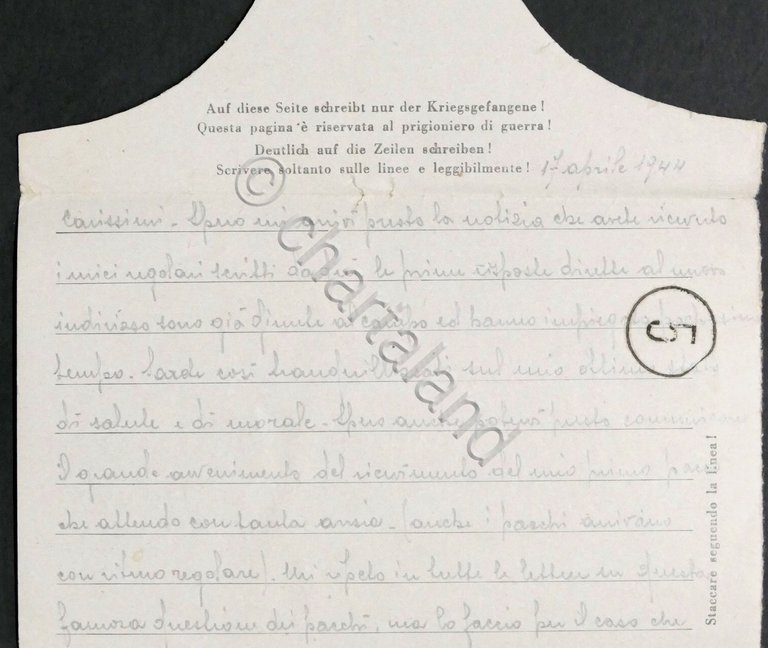 Auf diese Seite schreibt nur der Kriegsgefangene!
Questa pagina è riservata al prigioniero di guerra!
Deutlich auf die Zeilen schreiben!
Scrivere soltanto sulle linee e leggibilmente! 17 aprile 1944
Carissimi - Spero mi arrivi presto la notizia che avete ricevuto
i miei regolari scritti da qui le prime risposte dirette al nuovo
indirizzo sono già giunte al campo ed hanno impiegato
tempo. Sarete così tranquillizzati sul mio ottimo stato
di salute e di morale - Spero anche potervi presto comunicare
il grande avvenimento del ricevimento del mio primo pacco
che attendo con tanta ansia - (anche i pacchi arrivano
con ritmo regolare). Mi ripeto in tutte le lettere su questa
famosa questione dei pacchi, ma lo faccio per il caso che
5
Staccare seguendo la linea!
© chartaland